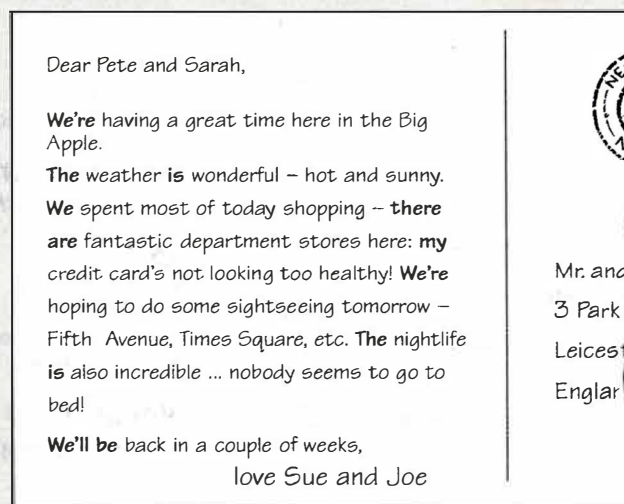 Dear Pete and Sarah,
We're having a great time here in the Big
Apple.
The weather is wonderful – hot and sunny.
We spent most of today shopping – there
are fantastic department stores here: my
credit card's not looking too healthy! We're
hoping to do some sightseeing tomorrow –
Fifth Avenue, Times Square, etc. The nightlife
is also incredible ... nobody seems to go to
bed!
We'll be back in a couple of weeks,
love Sue and Joe
Mr. and
3 Park
Leicest
Englan